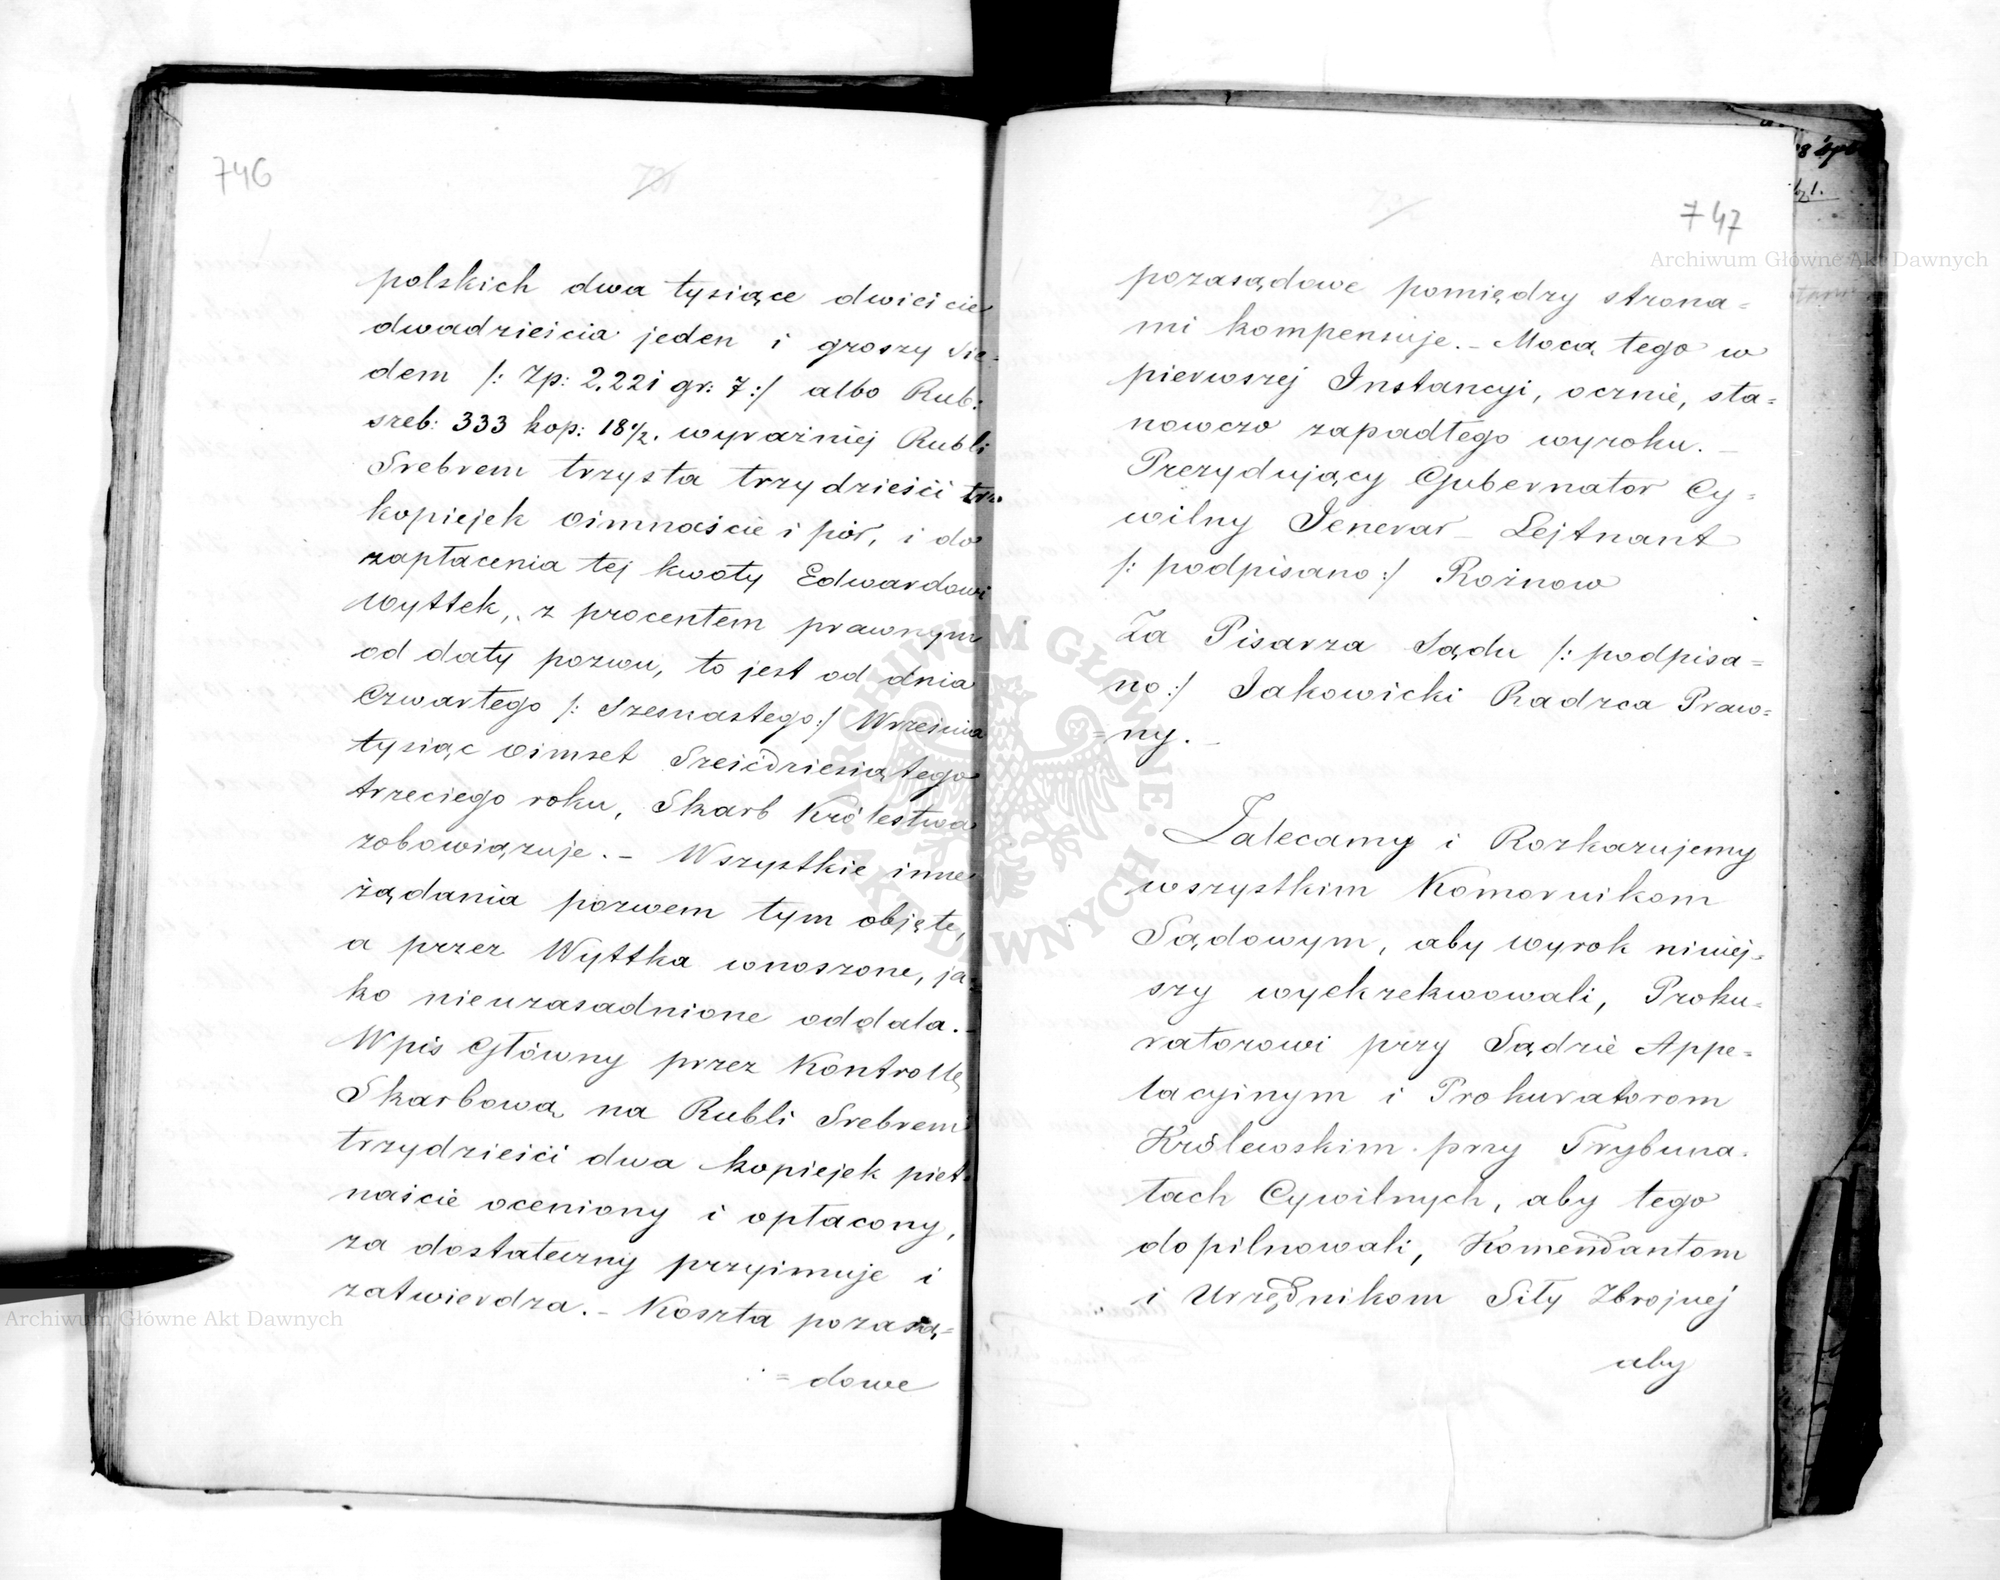 746
polskich dwa tysiące dwieście
dwadzieścia jeden i groszy sie-
dem /: Zp: 2,221 gr: 7:/ albo Rub:
sreb: 333 kop: 18 1/2. wyraźniej Rubli
Srebrem trzysta trzydzieści trz
kopiejek ośmnaście i pół, i do
zapłacenia tej kwoty Edwardowi
Wyttek, z procentem prawnym
od daty pozwu, to jest od dnia
Czwartego /: Szesnastego:/ Września
tysiąc ośmset Sześćdziesiątego
trzeciego roku, Skarb Królestwa
zobowiązuje. – Wszystkie inne
żądania pozwem tym objęte,
a przez Wyttka wnoszone, ja=
ko nieuzasadnione oddala. –
Wpis Główny przez Kontrollę
Skarbową na Rubli Srebrem
trzydzieści dwa kopiejek pięt-
naście oceniony i opłacony,
za dostateczny przyimuje i
zatwierdza. – Koszta pozasą=
= dowe
747
pozasądowe pomiędzy strona=
mi kompensuje. – Mocą tego w
pierwszej Instancyi, ocznie, sta=
nowczo zapadłego wyroku. –
Prezydujący Gubernator Cy=
wilny Jenerał – Lejtnant
/: podpisano:/ Rożnow
Za Pisarza Sądu /: podpisa=
no:/ Jakowicki Radzca Praw=
=ny. –
Zalecamy i Rozkazujemy
wszystkim Komornikom
Sądowym, aby wyrok niniej-
szy wyekzekwowali, Proku-
ratorowi przy Sądzie Appe=
lacyjnym i Prokuratorom
Królewskim przy Trybuna-
łach Cywilnych, aby tego
dopilnowali, Komendantom
i Urzędnikom Siły Zbrojnej
aby
Archiwum Główne Akt Dawnych
Archiwum Główne Akt Dawnych
ARCHIWUM GŁÓWNE AKT DAWNYCH